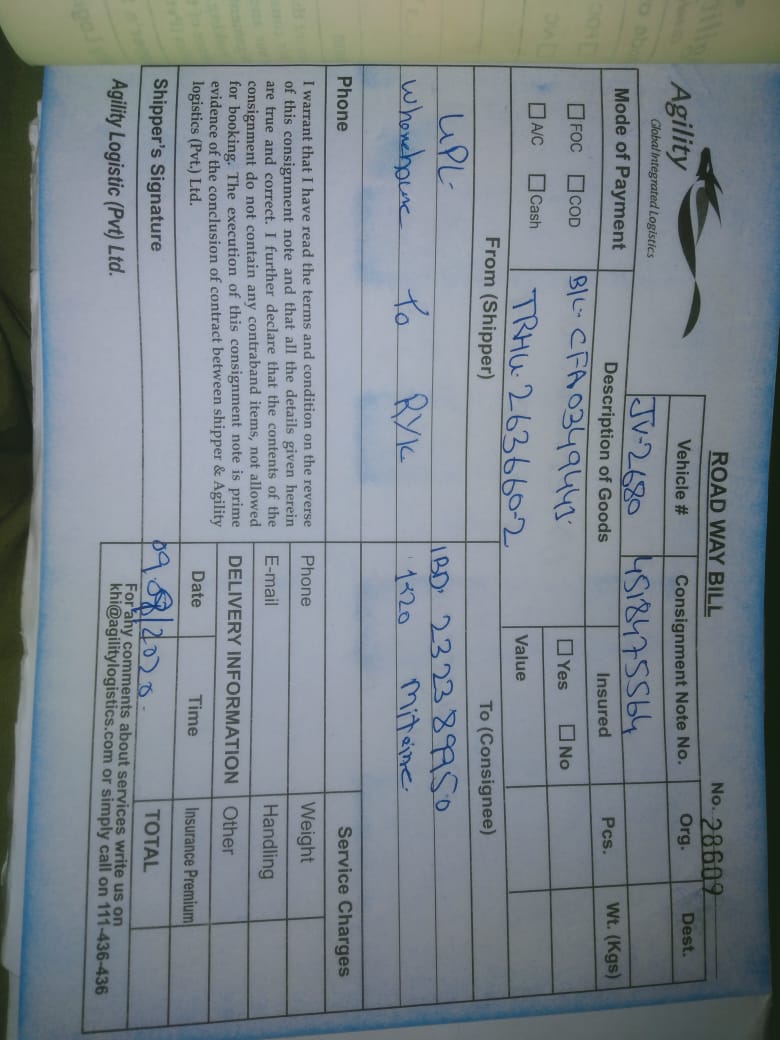 ROAD WAY BILL
No. 28609
Agility
Global Integrated Logistics
Vehicle #
Consignment Note No.
Org.
Dest.
JV-2680
4518475564
Mode of Payment
Description of Goods
Insured
Pcs.
Wt. (Kgs)
FOC
COD
B/L- CFA0349441
Yes
No
A/C
Cash
TRHU- 263660-2
Value
From (Shipper)
To (Consignee)
UPL-
IBD- 232389950
To RYK
1x20
Phone
Service Charges
I warrant that I have read the terms and condition on the reverse
of this consignment note and that all the details given herein
are true and correct. I further declare that the contents of the
consignment do not contain any contraband items, not allowed
for booking. The execution of this consignment note is prime
evidence of the conclusion of contract between shipper & Agility
logistics (Pvt.) Ltd.
Phone
Weight
E-mail
Handling
DELIVERY INFORMATION
Other
Date
Time
Insurance Premium
Shipper's Signature
09.08/2020.
TOTAL
Agility Logistic (Pvt) Ltd.
For any comments about services write us on
khi@agilitylogistics.com or simply call on 111-436-436